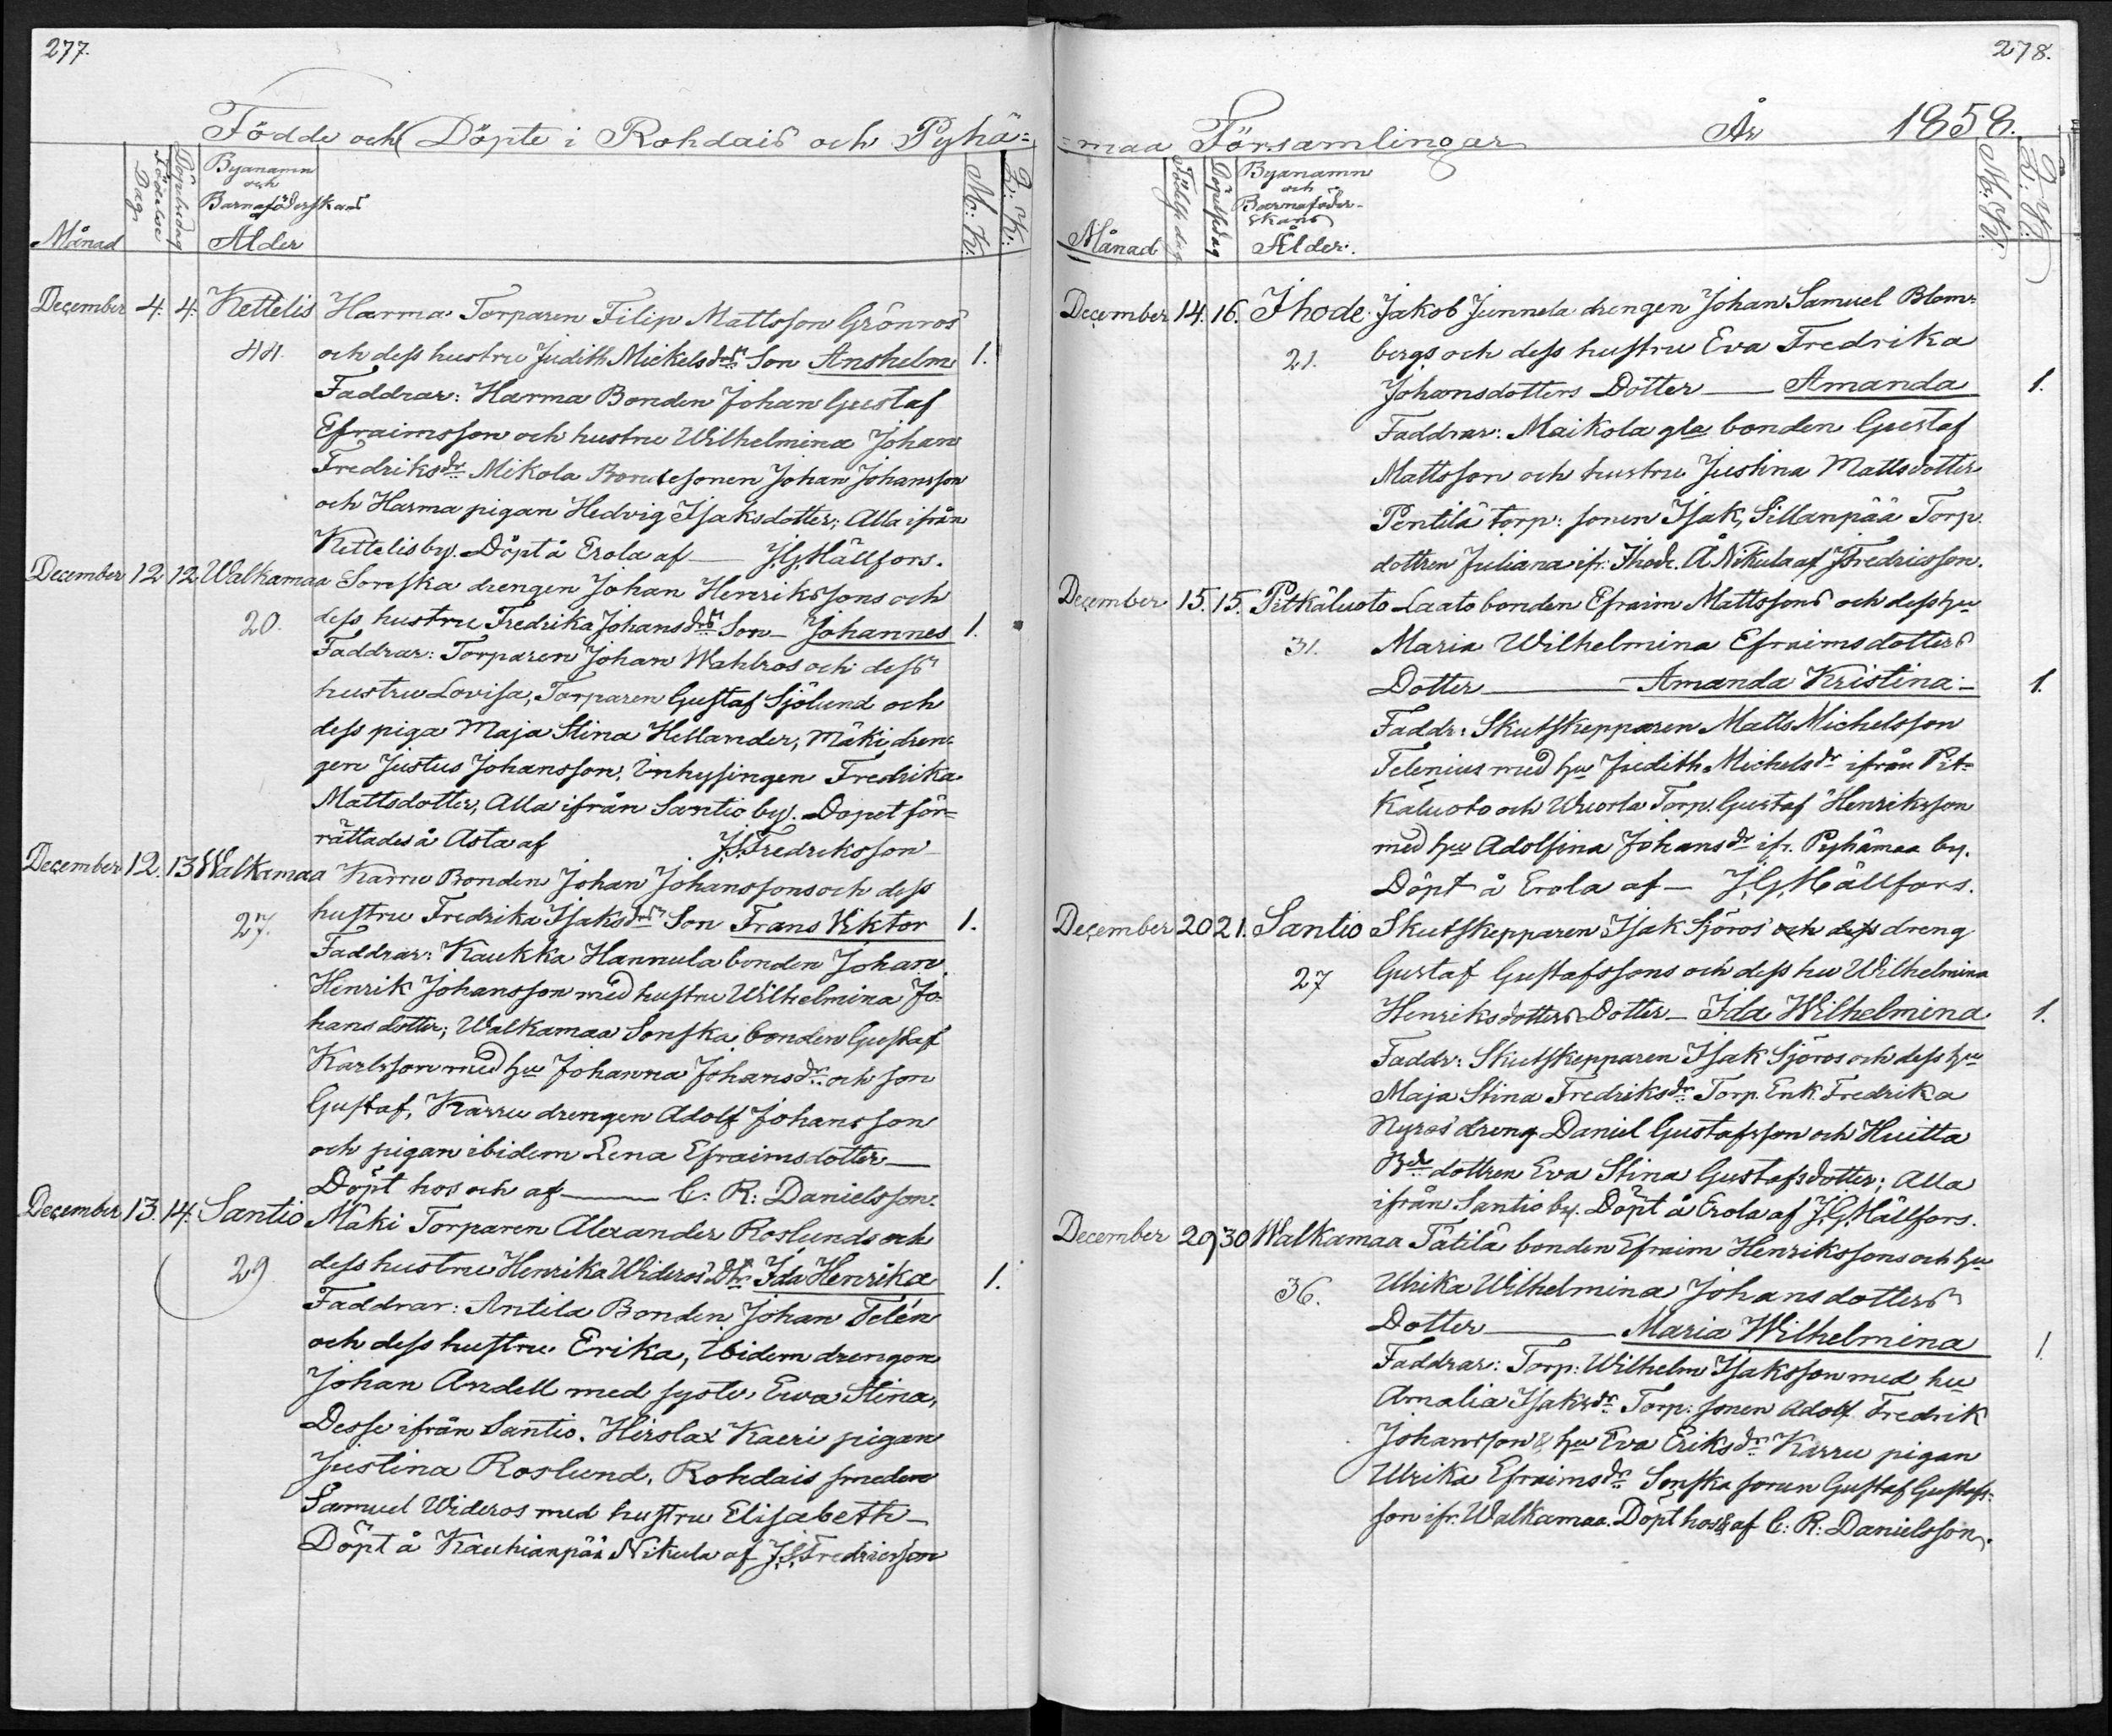 277.
Födde och Döpte i Rohdais och Pyhä=
Månad
Födelse
Dag.
Döpelsedag
Byanamn
och
Barnaföderskans
Ålder
M: K:
Q: K:
December 4. 4. Kettelis Harma Torparen Filip Mattsson Grönros
44. och dess hustru Judith Mickelsdrs Son Anshelm 1.
Faddrar: Harma Bonden Johan Gustaf
Efraimsson och hustru Wilhelmina Johan
Fredriksdr Mikola Bondesonen Johan Johansson
och Harma pigan Hedvig Isaksdotter; Alla ifrån
Kettelis by. Döpt å Erola af — J.G. Hällfors.
December 12 12 Walkamaa Sonska drengen Johan Henrikssons och
20. dess hustru Fredrika Johansdrs Son — Johannes 1.
Faddrar: Torparen Johan Wahlros och dess
hustru Lovisa, Torparen Gustaf Sjölund och
dess piga Maja Stina Hellander, Mäki dren=
gen Justus Johansson, Inhysingen Fredrika
Mattsdotter, Alla ifrån Santio by. Dopet för=
rättades å Asta af J.S. Fredriksson
December 12. 13 Walkamaa Karru Bonden Johan Johanssons och dess
27. hustru Fredrika Isaksdrs Son Frans Viktor 1.
Faddrar: Kaukka Hannula bonden Johan
Henrik Johansson med hustru Wilhelmina Jo=
hansdotter; Walkamaa Sonska bonden Gustaf
Karlsson med hu Johanna Johansdr och son
Gustaf, Karru drengen Adolf Johansson
och pigan ibidem Lena Efraimsdotter —
Döpt hos och af — C: R: Danielsson.
December 13. 14. Santio Mäki Torparen Alexander Roslunds och
29 dess hustru Henrika Wideros' Dtr Ida Henrika 1.
Faddrar: Antila Bonden Johan Telén
och dess hustru Erika, Ibidem drengen
Johan Andell med syster Ewa Stina,
Desse ifrån Santio. Hirslax Kaeri pigan
Justina Roslund, Rohdais smeden
Samuel Wideros med hustru Elisabeth —
Döpt å Kauhianpää Nikula af J.S. Fredricsson
278.
=maa Församlingar År 1858.
Månad
Födelsedag
Döpelsedag
Byanamn
och
Barnaföder-
skans
Ålder.
M: K:
Q: K:
December 14. 16. Ihode. Jakob Junnela drengen Johan Samuel Blom=
21. bergs och dess hustru Eva Fredrika
Johansdotters Dotter — Amanda 1.
Faddrar: Maikola gla bonden Gustaf
Mattsson och hustru Justina Mattsdotter
Pentilä torp: sonen Isak, Sillanpää Torp.
dottren Juliana ifr: Ihode. Å Nikula af J. Fredricsson.
December 15. 15. Pitkäluoto Laato bonden Efraim Mattssons och dess hu
31. Maria Wilhelmina Efraimsdotters
Dotter — Amanda Kristina — 1.
Faddr: Skutskepparen Matts Michelsson
Telenius med hu Judith Michelsdr ifrån Pit=
käluoto och Wuorla Torp. Gustaf Henriksson
med hu Adolfina Johansdr ifr. Pyhämaa by.
Döpt å Erola af — J.G. Hällfors.
December 20 21. Santio Skutskepparen Isak Sjöros' och dess dreng
27 Gustaf Gustafssons och dess hu Wilhelmina
Henriksdotters Dotter — Ida Wilhelmina 1.
Faddr: Skutskepparen Isak Sjöros och dess hu
Maja Stina Fredriksdr Torp. Enk. Fredrika
Nyros' dreng Daniel Gustafsson och Huitta
Bde dottren Eva Stina Gustafsdotter; Alla
ifrån Santio by. Döpt å Erola af J.G. Hällfors.
December 29 30 Walkamaa Tätilä bonden Efraim Henrikssons och hu
36. Ulrika Wilhelmina Johansdotters
Dotter — Maria Wilhelmina 1.
Faddrar: Torp: Wilhelm Isaksson med hu
Amalia Isaksdr Torp: sonen Adolf Fredrik
Johansson & hu Eva Eriksdr Karru pigan
Ulrika Efraimsdr Sonska sonen Gustaf Gustafs=
son ifr. Walkamaa. Döpt hos & af C: R: Danielsson.